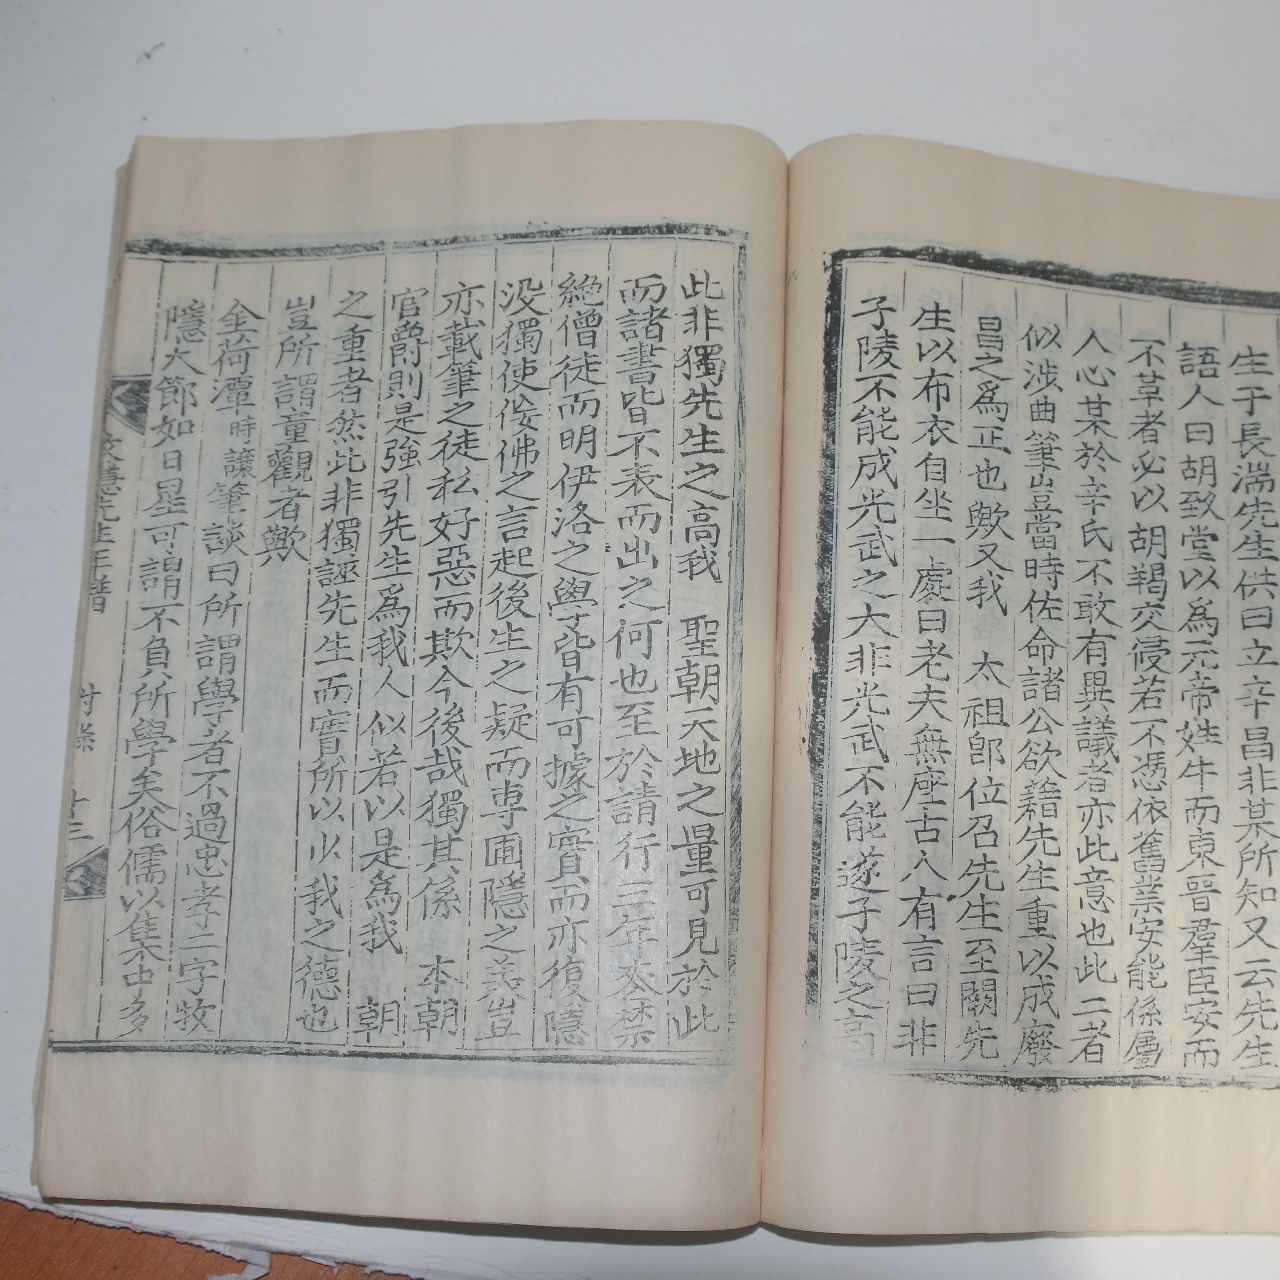 生于長湍先生供曰立辛昌非某所知又云先生
語人曰胡致堂以為元帝姓牛而東晉羣臣安而
不革者必以胡羯交侵若不憑依舊業安能係屬
人心某於辛氏不敢有異議者亦此意也此二者
似涉曲筆豈當時佐命諸公欲藉先生重以成廢
昌之爲正也歟又我 太祖卽位召先生至闕先
生以布衣自坐一處曰老夫無座古人有言曰非
子陵不能成光武之大非光武不能遂子陵之高
此非獨先生之高我 聖朝天地之量可見於此
而諸書皆不表而出之何也至於請行三年喪禁
絶僧徒而明伊洛之學皆有可據之實而亦復隱
没獨使侫佛之言起後生之疑而專圃隱之美豈
亦載筆之徒私好惡而欺今後哉獨其係 本朝
官爵則是強引先生爲我人 似若以是為我 朝
之重者然此非獨誣先生而實所以少我之德也
豈所謂童觀者歟
金荷潭時讓筆談曰所謂學者不過忠孝二字牧
隱大節如日星可謂不負所學矣俗儒以集中多
牧隱先生年譜 附錄 十三